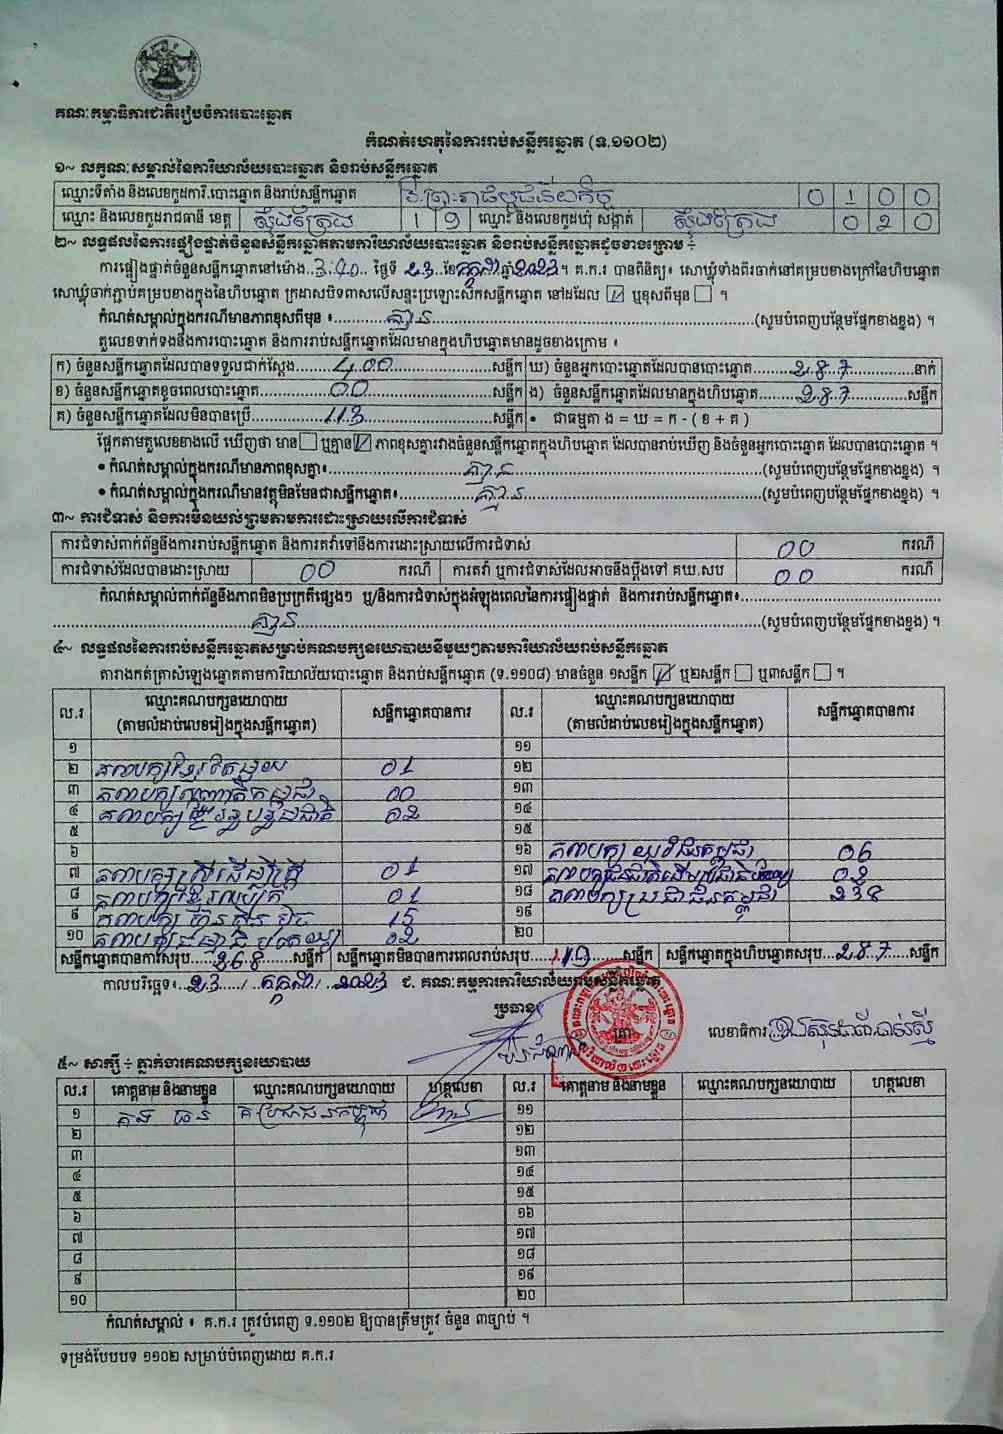 គណៈកម្មាធិការជាតិរៀបចំការបោះឆ្នោត
កំណត់ហេតុនៃការរាប់សន្លឹកឆ្នោត (ទ.១១០២)
១~ លក្ខណៈសម្គាល់នៃការិយាល័យបោះឆ្នោត និងរាប់សន្លឹកឆ្នោត
ឈ្មោះទីតាំង និងលេខកូដការិ.បោះឆ្នោត និងរាប់សន្លឹកឆ្នោត 0 1 0 0
ឈ្មោះ និងលេខកូដរាជធានី ខេត្ត ស្ទឹងត្រែង 1 9 ឈ្មោះ និងលេខកូដឃុំ សង្កាត់ ស្ទឹងត្រែង 0 2 0
២~ លទ្ធផលនៃការផ្ទៀងផ្ទាត់ចំនួនសន្លឹកឆ្នោតតាមការិយាល័យបោះឆ្នោត និងរាប់សន្លឹកឆ្នោតដូចខាងក្រោម ÷
ការផ្ទៀងផ្ទាត់ចំនួនសន្លឹកឆ្នោតនៅម៉ោង..3:40.. ថ្ងៃទី 23 ខែ កក្កដា ឆ្នាំ 2023។ គ.ក.រ បានពិនិត្យ៖ សោឃ្លុំទាំងពីរចាក់នៅគម្របខាងក្រៅនៃហិបឆ្នោត
សោឃ្លុំចាក់ភ្ជាប់គម្របខាងក្នុងនៃហិបឆ្នោត ក្រដាសបិទពាសលើសន្ទះប្រឡោះស៊កសន្លឹកឆ្នោត នៅដដែល ☑ ឬខុសពីមុន ☐ ។
កំណត់សម្គាល់ក្នុងករណីមានភាពខុសពីមុន ៖ គ្មាន (សូមបំពេញបន្ថែមផ្នែកខាងខ្នង) ។
តួលេខទាក់ទងនឹងការបោះឆ្នោត និងការរាប់សន្លឹកឆ្នោតដែលមានក្នុងហិបឆ្នោតមានដូចខាងក្រោម ៖
ក) ចំនួនសន្លឹកឆ្នោតដែលបានទទួលជាក់ស្តែង 400 សន្លឹក ឃ) ចំនួនអ្នកបោះឆ្នោតដែលបានបោះឆ្នោត 287 នាក់
ខ) ចំនួនសន្លឹកឆ្នោតខូចពេលបោះឆ្នោត 00 សន្លឹក ង) ចំនួនសន្លឹកឆ្នោតដែលមានក្នុងហិបឆ្នោត 287 សន្លឹក
គ) ចំនួនសន្លឹកឆ្នោតដែលមិនបានប្រើ 113 សន្លឹក • ជាធម្មតា ង = ឃ = ក - ( ខ + គ )
ផ្អែកតាមតួលេខខាងលើ ឃើញថា មាន ☐ ឬគ្មាន ☑ ភាពខុសគ្នារវាងចំនួនសន្លឹកឆ្នោតក្នុងហិបឆ្នោត ដែលបានរាប់ឃើញ និងចំនួនអ្នកបោះឆ្នោត ដែលបានបោះឆ្នោត ។
• កំណត់សម្គាល់ក្នុងករណីមានភាពខុសគ្នា៖ គ្មាន (សូមបំពេញបន្ថែមផ្នែកខាងខ្នង) ។
• កំណត់សម្គាល់ក្នុងករណីមានវត្ថុមិនមែនជាសន្លឹកឆ្នោត៖ គ្មាន (សូមបំពេញបន្ថែមផ្នែកខាងខ្នង) ។
៣~ ការជំទាស់ និងការមិនយល់ព្រមតាមការដោះស្រាយលើការជំទាស់
ការជំទាស់ពាក់ព័ន្ធនឹងការរាប់សន្លឹកឆ្នោត និងការតវ៉ាទៅនឹងការដោះស្រាយលើការជំទាស់ 00 ករណី
ការជំទាស់ដែលបានដោះស្រាយ 00 ករណី ការតវ៉ា ឬការជំទាស់ដែលអាចនឹងប្តឹងទៅ គឃ.សប 00 ករណី
កំណត់សម្គាល់ពាក់ព័ន្ធនឹងភាពមិនប្រក្រតីផ្សេងៗ ឬ/និងការជំទាស់ក្នុងអំឡុងពេលនៃការផ្ទៀងផ្ទាត់ និងការរាប់សន្លឹកឆ្នោត៖
គ្មាន (សូមបំពេញបន្ថែមផ្នែកខាងខ្នង) ។
៤~ លទ្ធផលនៃការរាប់សន្លឹកឆ្នោតសម្រាប់គណបក្សនយោបាយនីមួយៗតាមការិយាល័យរាប់សន្លឹកឆ្នោត
តារាងកត់ត្រាសំឡេងឆ្នោតតាមការិយាល័យបោះឆ្នោត និងរាប់សន្លឹកឆ្នោត (ទ.១១០៨) មានចំនួន ១សន្លឹក ☑ ឬ២សន្លឹក ☐ ឬ៣សន្លឹក ☐ ។
ល.រ ឈ្មោះគណបក្សនយោបាយ (តាមលំដាប់លេខរៀងក្នុងសន្លឹកឆ្នោត) សន្លឹកឆ្នោតបានការ ល.រ ឈ្មោះគណបក្សនយោបាយ (តាមលំដាប់លេខរៀងក្នុងសន្លឹកឆ្នោត) សន្លឹកឆ្នោតបានការ
១ ១១
២ គណបក្សខ្មែររួបរួម 01 ១២
៣ 00 ១៣
៤ 02 ១៤
៥ ១៥
៦ ១៦ គណបក្ស យុវជនកម្ពុជា 06
៧ គណបក្សស្ត្រីដើម្បីស្ត្រី 01 ១៧ 02
៨ 01 ១៨ គណបក្សប្រជាជនកម្ពុជា 238
៩ គណបក្ស ហ៊្វុនស៊ិនប៉ិច 15 ១៩
១០ 02 ២០
សន្លឹកឆ្នោតបានការសរុប 268 សន្លឹក សន្លឹកឆ្នោតមិនបានការពេលរាប់សរុប 19 សន្លឹក សន្លឹកឆ្នោតក្នុងហិបឆ្នោតសរុប 287 សន្លឹក
កាលបរិច្ឆេទ៖ 23 / កក្កដា / 2023 ជ. គណៈកម្មការការិយាល័យរាប់សន្លឹកឆ្នោត
ប្រធាន លេខាធិការ
៥~ សាក្សី ÷ ភ្នាក់ងារគណបក្សនយោបាយ
ល.រ គោត្តនាម និងនាមខ្លួន ឈ្មោះគណបក្សនយោបាយ ហត្ថលេខា ល.រ គោត្តនាម និងនាមខ្លួន ឈ្មោះគណបក្សនយោបាយ ហត្ថលេខា
១ គ.ប្រជាជនកម្ពុជា ១១
២ ១២
៣ ១៣
៤ ១៤
៥ ១៥
៦ ១៦
៧ ១៧
៨ ១៨
៩ ១៩
១០ ២០
កំណត់សម្គាល់ ៖ គ.ក.រ ត្រូវបំពេញ ទ.១១០២ ឱ្យបានត្រឹមត្រូវ ចំនួន ៣ច្បាប់ ។
ទម្រង់បែបបទ ១១០២ សម្រាប់បំពេញដោយ គ.ក.រ